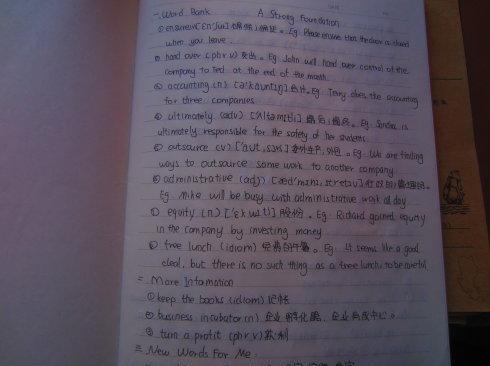 一. Word Bank A Strong Foundation
① ensure(v) [ɛn'ʃur] 确保; 保证。Eg. Please ensure that the door is closed
when you leave.
② hand over (phr v) 交出。Eg. John will hand over control of the
company to Ted at the end of the month.
③ accounting (n) [ə'kauntɪŋ] 会计。Eg. Terry does the accounting
for three companies.
④ ultimately (adv) 最后; 最终。Eg. Sandra is
ultimately responsible for the safety of her students.
⑤ outsource (v) ['aut,sɔrs] 委外生产; 外包。Eg. We are finding
ways to outsource some work to another company
⑥ administrative (adj) 行政的; 管理的。
Eg. Mike will be busy with administrative work all day
⑦ equity (n) ['ɛkwɪtɪ] 股份。Eg. Richard gained equity
in the company by investing money
⑧ free lunch (idiom) 免费的午餐。Eg. It seems like a good
deal, but there is no such thing as a free lunch, so be careful
二 More Information
① keep the books (idiom) 记帐
② business incubator (n) 企业孵化器, 企业育成中心。
③ turn a profit (phr v) 获利
三 New Words For Me: